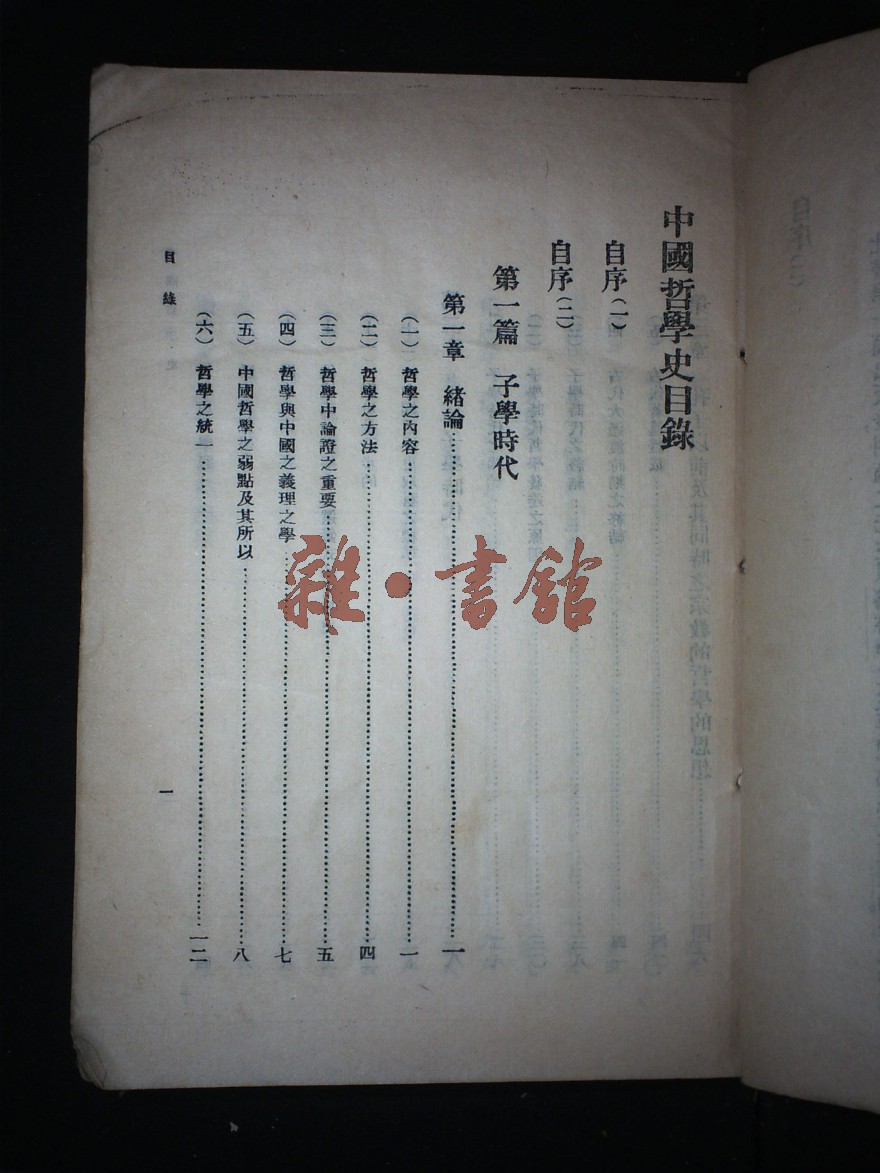 中國哲學史目錄
自序(一)
自序(二)
第一篇 子學時代
第一章 緒論……一
(一)哲學之內容……一
(二)哲學之方法……四
(三)哲學中論證之重要……五
(四)哲學與中國之義理之學……七
(五)中國哲學之弱點及其所以……八
(六)哲學之統一……一二
目錄 一
雜·書館